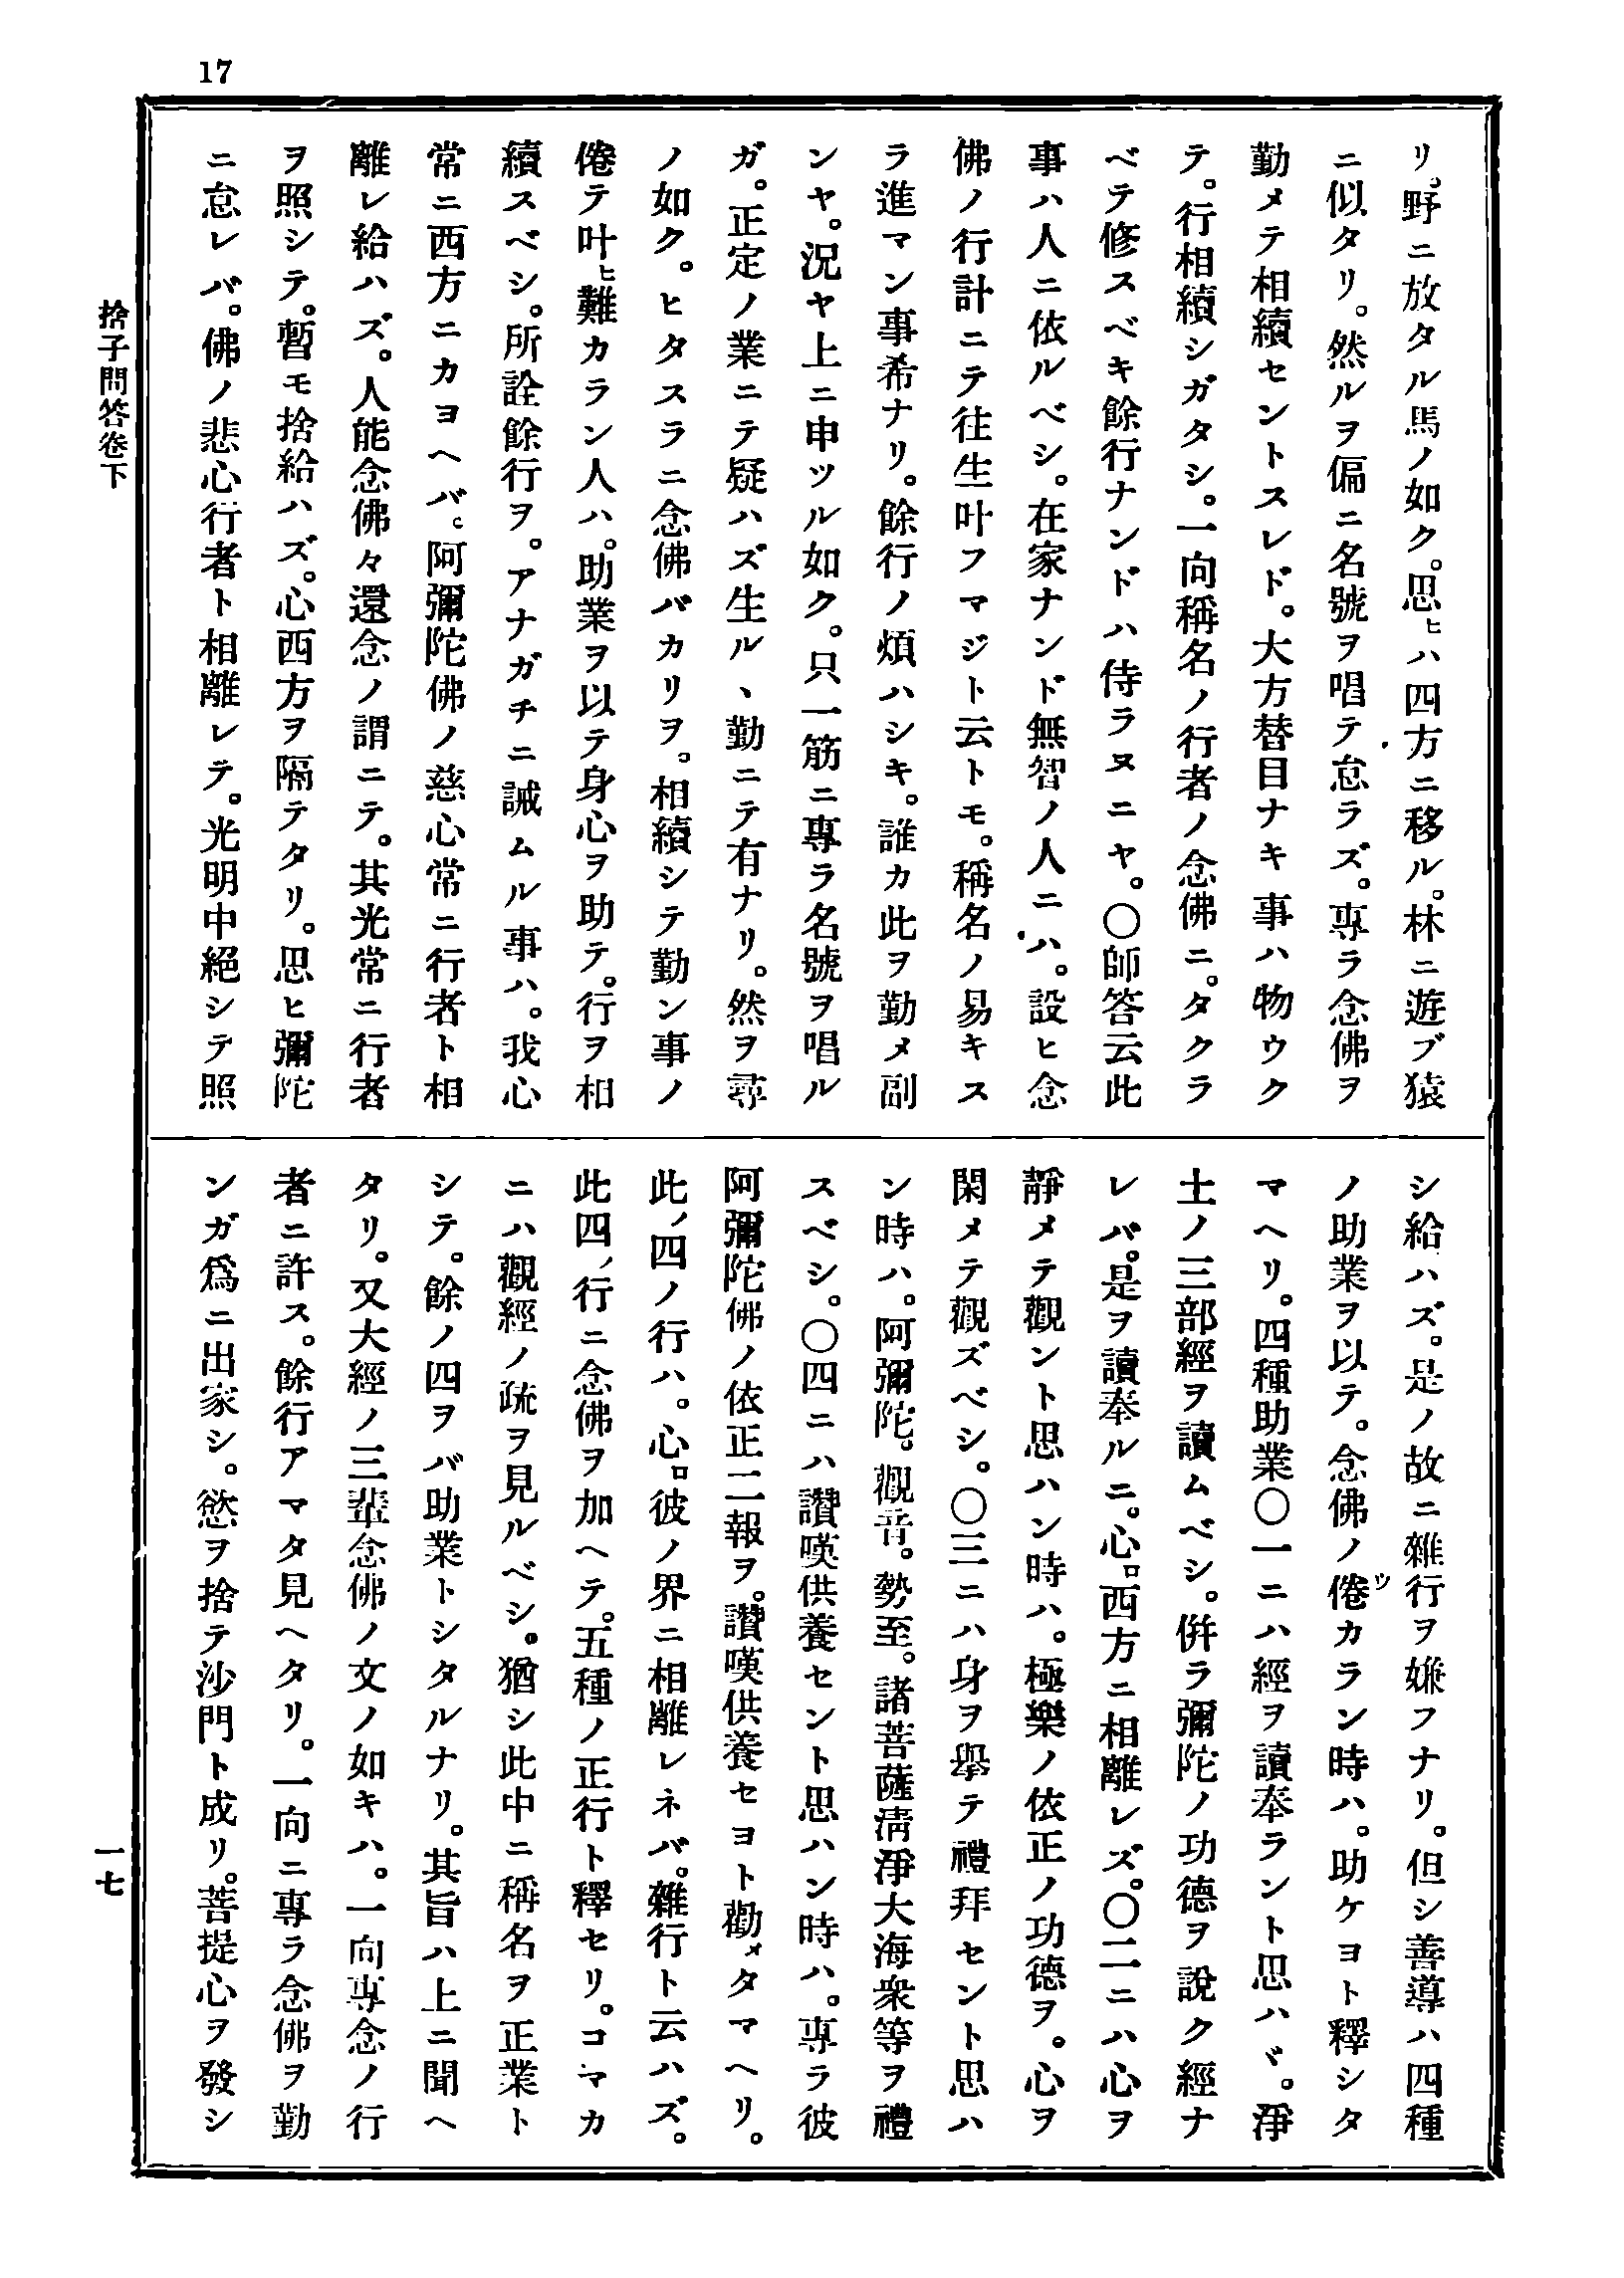 17
リ。野ニ放タル馬ノ如ク。思ヒハ四方ニ移ル。林ニ遊ブ猿
ニ似タリ。然ルヲ偏ニ名號ヲ唱テ怠ラズ。專ラ念佛ヲ
勤メテ相續セントスレド。大方替目ナキ事ハ物ウク
テ。行相續シガタシ。一向稱名ノ行者ノ念佛ニ。タクラ
ベテ修スベキ餘行ナンドハ侍ラヌニヤ。〇師答云此
事ハ人ニ依ルベシ。在家ナンド無智ノ人ニハ。設ヒ念
佛ノ行計ニテ往生叶フマジト云トモ。稱名ノ易キス
ラ進マン事希ナリ。餘行ノ煩ハシキ。誰カ此ヲ勤メ副
ンヤ。況ヤ上ニ申ツル如ク。只一筋ニ專ラ名號ヲ唱ル
ガ。正定ノ業ニテ疑ハズ生ル、勤ニテ有ナリ。然ヲ尋
ノ如ク。ヒタスラニ念佛バカリヲ。相續シテ勤ン事ノ
倦テ叶ヒ難カラン人ハ。助業ヲ以テ身心ヲ助テ。行ヲ相
續スベシ。所詮餘行ヲ。アナガチニ誡ムル事ハ。我心
常ニ西方ニカヨヘバ。阿彌陀佛ノ慈心常ニ行者ト相
離レ給ハズ。人能念佛々還念ノ謂ニテ。其光常ニ行者
ヲ照シテ。暫モ捨給ハズ。心西方ヲ隔テタリ。思ヒ彌陀
ニ怠レバ。佛ノ悲心行者ト相離レテ。光明中絕シテ照
シ給ハズ。是ノ故ニ雜行ヲ嫌フナリ。但シ善導ハ四種
ノ助業ヲ以テ。念佛ノ倦ツカラン時ハ。助ケヨト釋シタ
マヘリ。四種助業〇一ニハ經ヲ讀奉ラント思ハヾ。淨
土ノ三部經ヲ讀ムベシ。併ラ彌陀ノ功德ヲ說ク經ナ
レバ。是ヲ讀奉ルニ。心口西方ニ相離レズ。〇二ニハ心ヲ
靜メテ觀ント思ハン時ハ。極樂ノ依正ノ功德ヲ。心ヲ
閑メテ觀ズベシ。〇三ニハ身ヲ擧テ禮拜セント思ハ
ン時ハ。阿彌陀。觀音。勢至。諸菩薩淸淨大海衆等ヲ禮
スベシ。〇四ニハ讚嘆供養セント思ハン時ハ。專ラ彼
阿彌陀佛ノ依正二報ヲ。讚嘆供養セヨト勸メタマヘリ。
此ノ四ノ行ハ。心口彼ノ界ニ相離レネバ。雜行ト云ハズ。
此四ノ行ニ念佛ヲ加ヘテ。五種ノ正行ト釋セリ。コマカ
ニハ觀經ノ疏ヲ見ルベシ。猶シ此中ニ稱名ヲ正業ト
シテ。餘ノ四ヲバ助業トシタルナリ。其旨ハ上ニ聞ヘ
タリ。又大經ノ三輩念佛ノ文ノ如キハ。一向專念ノ行
者ニ許ス。餘行アマタ見ヘタリ。一向ニ專ラ念佛ヲ勤
ンガ爲ニ出家シ。慾ヲ捨テ沙門ト成リ。菩提心ヲ發シ
捨子問答卷下
一七